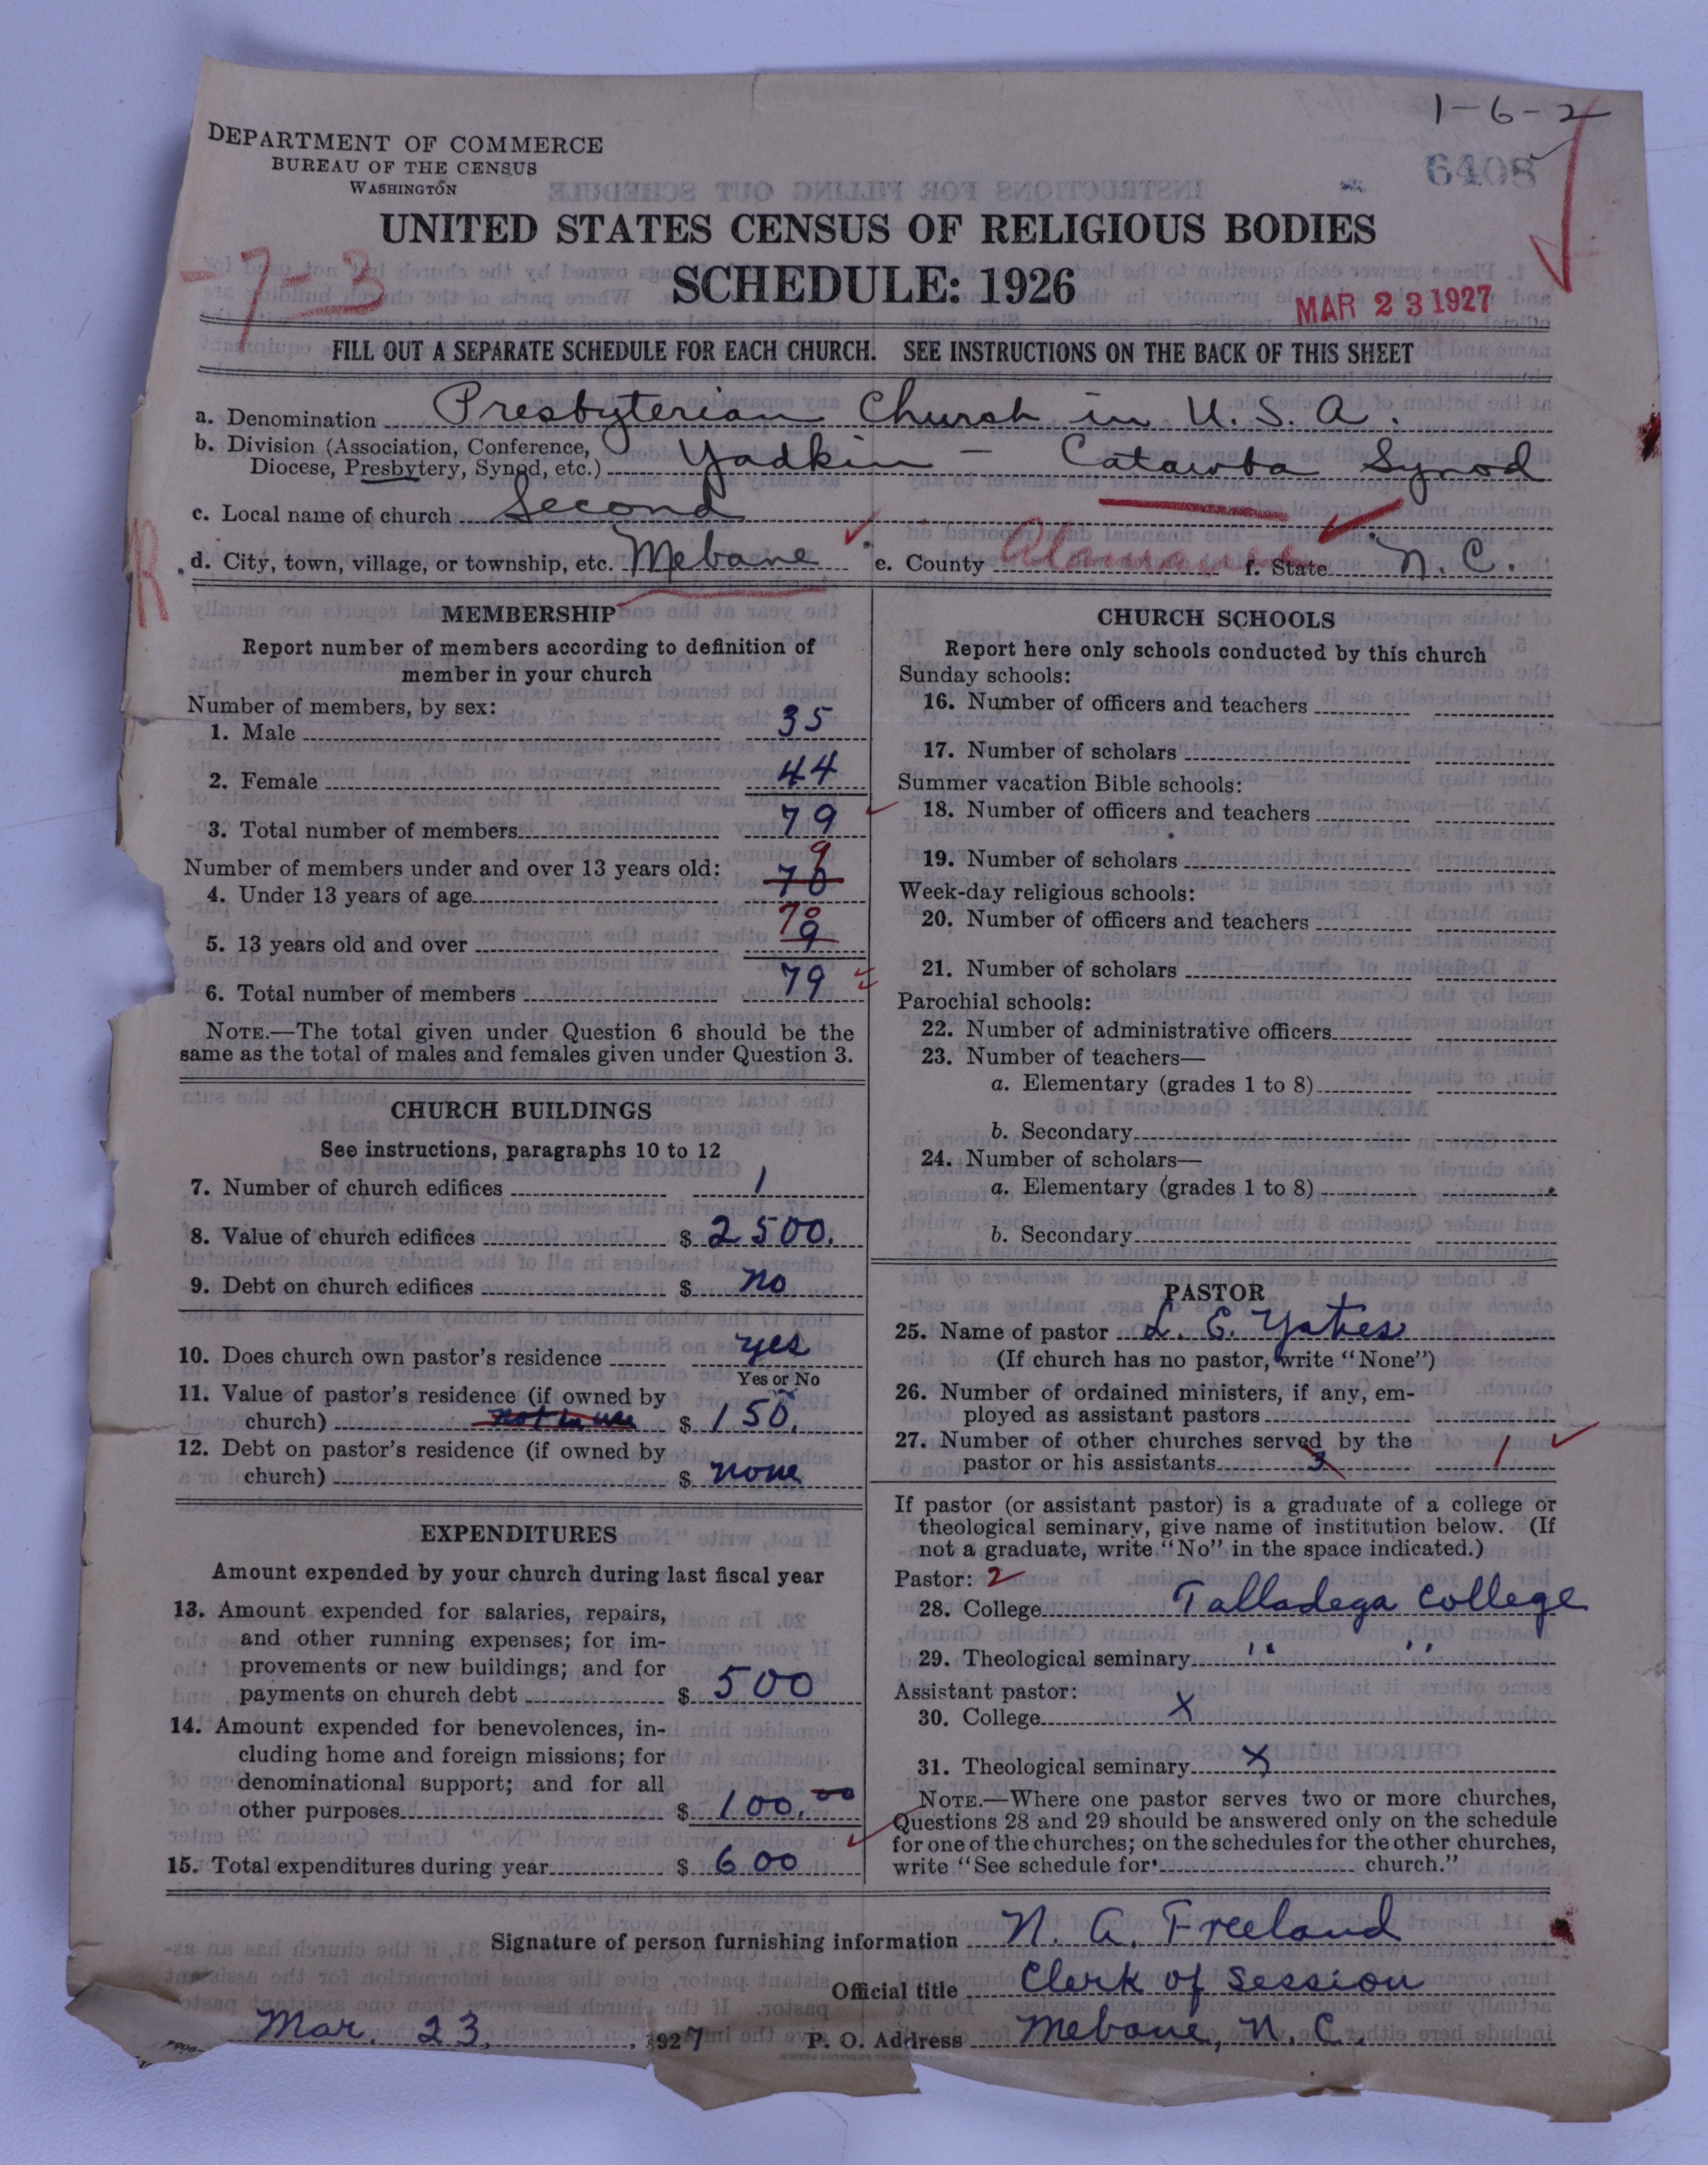 1-6-2
DEPARTMENT OF COMMERCE
BUREAU OF THE CENSUS
WASHINGTON
6408
UNITED STATES CENSUS OF RELIGIOUS BODIES
-7-3
SCHEDULE: 1926
MAR 23 1927
FILL OUT A SEPARATE SCHEDULE FOR EACH CHURCH. SEE INSTRUCTIONS ON THE BACK OF THIS SHEET
a. Denomination Presbyterian Church in U.S.A.
b. Division (Association, Conference,
Diocese, Presbytery, Synod, etc.) Yadkin - Catawba Synod
c. Local name of church Second
R
d. City, town, village, or township, etc. Mebane e. County Alamance f. State N.C.
MEMBERSHIP
Report number of members according to definition of
member in your church
Number of members, by sex:
1. Male 35
2. Female 44
3. Total number of members 79
Number of members under and over 13 years old: 9
4. Under 13 years of age 70
70
5. 13 years old and over 9
6. Total number of members 79
NOTE.—The total given under Question 6 should be the
same as the total of males and females given under Question 3.
CHURCH BUILDINGS
See instructions, paragraphs 10 to 12
7. Number of church edifices 1
8. Value of church edifices $ 2500.
9. Debt on church edifices $ no
10. Does church own pastor's residence yes
Yes or No
11. Value of pastor's residence (if owned by
church) not in use $ 150.
12. Debt on pastor's residence (if owned by
church) $ none
EXPENDITURES
Amount expended by your church during last fiscal year
13. Amount expended for salaries, repairs,
and other running expenses; for im-
provements or new buildings; and for
payments on church debt $ 500
14. Amount expended for benevolences, in-
cluding home and foreign missions; for
denominational support; and for all
other purposes $ 100.00
15. Total expenditures during year $ 600
CHURCH SCHOOLS
Report here only schools conducted by this church
Sunday schools:
16. Number of officers and teachers
17. Number of scholars
Summer vacation Bible schools:
18. Number of officers and teachers
19. Number of scholars
Week-day religious schools:
20. Number of officers and teachers
21. Number of scholars
Parochial schools:
22. Number of administrative officers
23. Number of teachers—
a. Elementary (grades 1 to 8)
b. Secondary
24. Number of scholars—
a. Elementary (grades 1 to 8)
b. Secondary
PASTOR
25. Name of pastor L. E. Yates
(If church has no pastor, write "None")
26. Number of ordained ministers, if any, em-
ployed as assistant pastors
27. Number of other churches served by the
pastor or his assistants 3 1
If pastor (or assistant pastor) is a graduate of a college or
theological seminary, give name of institution below. (If
not a graduate, write "No" in the space indicated.)
Pastor: 2
28. College Talladega College
29. Theological seminary " "
Assistant pastor:
30. College X
31. Theological seminary X
NOTE.—Where one pastor serves two or more churches,
Questions 28 and 29 should be answered only on the schedule
for one of the churches; on the schedules for the other churches,
write "See schedule for church."
Signature of person furnishing information N. A. Freeland
Official title Clerk of Session
Mar. 23, 1927 P. O. Address Mebane, N. C.